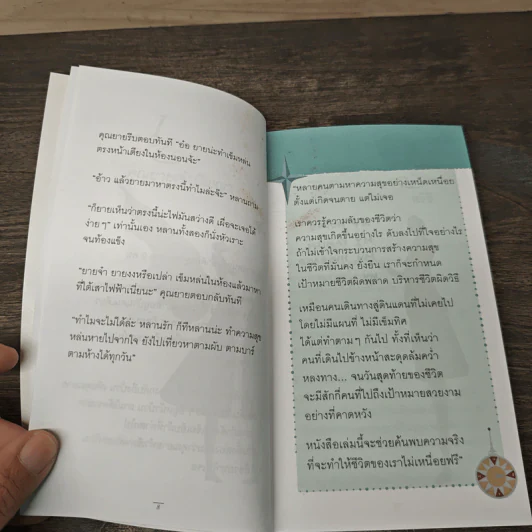 คุณยายรีบตอบทันที "อ๋อ ยายน่ะทำเข็มหล่น
ตรงหน้าเตียงในห้องนอนจ้ะ"
"อ้าว แล้วยายมาหาตรงนี้ทำไมล่ะจ๊ะ" หลานถาม
"ก็ยายเห็นว่าตรงนี้น่ะไฟมันสว่างดี เผื่อจะเจอได้
ง่าย ๆ" เท่านั้นเอง หลานทั้งสองก็นั่งหัวเราะ
จนท้องแข็ง
"ยายจ๋า ยายงงหรือเปล่า เข็มหล่นในห้องแล้วมาหา
ที่ใต้เสาไฟฟ้าเนี่ยนะ" คุณยายตอบกลับทันที
"ทำไมจะไม่ได้ล่ะ หลานรัก ก็ทีหลานน่ะ ทำความสุข
หล่นหายไปจากใจ ยังไปเที่ยวหาตามผับ ตามบาร์
ตามห้างได้ทุกวัน"
8
"หลายคนตามหาความสุขอย่างเหน็ดเหนื่อย
ตั้งแต่เกิดจนตาย แต่ไม่เจอ
เราควรรู้ความลับของชีวิตว่า
ความสุขเกิดขึ้นอย่างไร ดับลงไปที่ใจอย่างไร
ถ้าไม่เข้าใจกระบวนการสร้างความสุข
ในชีวิตที่มั่นคง ยั่งยืน เราก็จะกำหนด
เป้าหมายชีวิตผิดพลาด บริหารชีวิตผิดวิธี
เหมือนคนเดินทางสู่ดินแดนที่ไม่เคยไป
โดยไม่มีแผนที่ ไม่มีเข็มทิศ
ได้แต่ทำตาม ๆ กันไป ทั้งที่เห็นว่า
คนที่เดินไปข้างหน้าสะดุดล้มคว่ำ
หลงทาง... จนวันสุดท้ายของชีวิต
จะมีสักกี่คนที่ไปถึงเป้าหมายสวยงาม
อย่างที่คาดหวัง
หนังสือเล่มนี้จะช่วยค้นพบความจริง
ที่จะทำให้ชีวิตของเราไม่เหนื่อยฟรี"